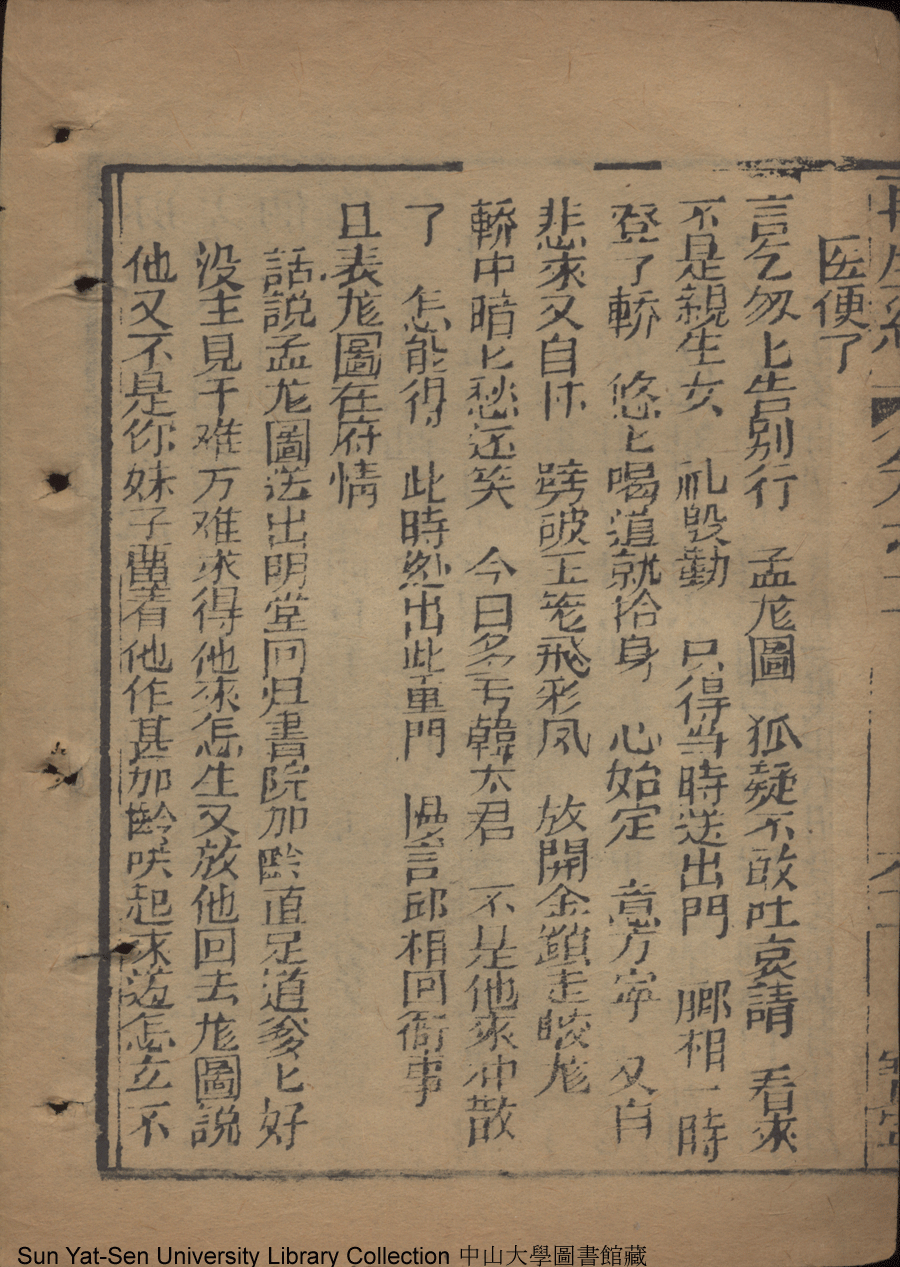 再生缘
医便了
言乞匆匕告别行　孟尨圖　狐疑不敢吐哀請　看來
不是親生女　礼毁勤　只得当時送出門　郦相一時
登了轎　悠匕喝道就抬身　心始定　意方寧　又自
悲來又自忻　劈破玉笼飛彩凤　放開金鎖走蛟尨
轎中暗匕愁还笑　今日多亏韓太君　不是他來冲散
了　怎能得　此時繞出此重門　慢言郎相回衙事
且表尨圖在府情
話説孟尨圖送出明堂回归書院加齡直足道爹匕好
没主見千难万难求得他來怎生又放他回去尨圖說
他又不是你妹子畄着他作甚加齡哭起來道怎么不
Sun Yat-Sen University Library Collection 中山大學圖書館藏